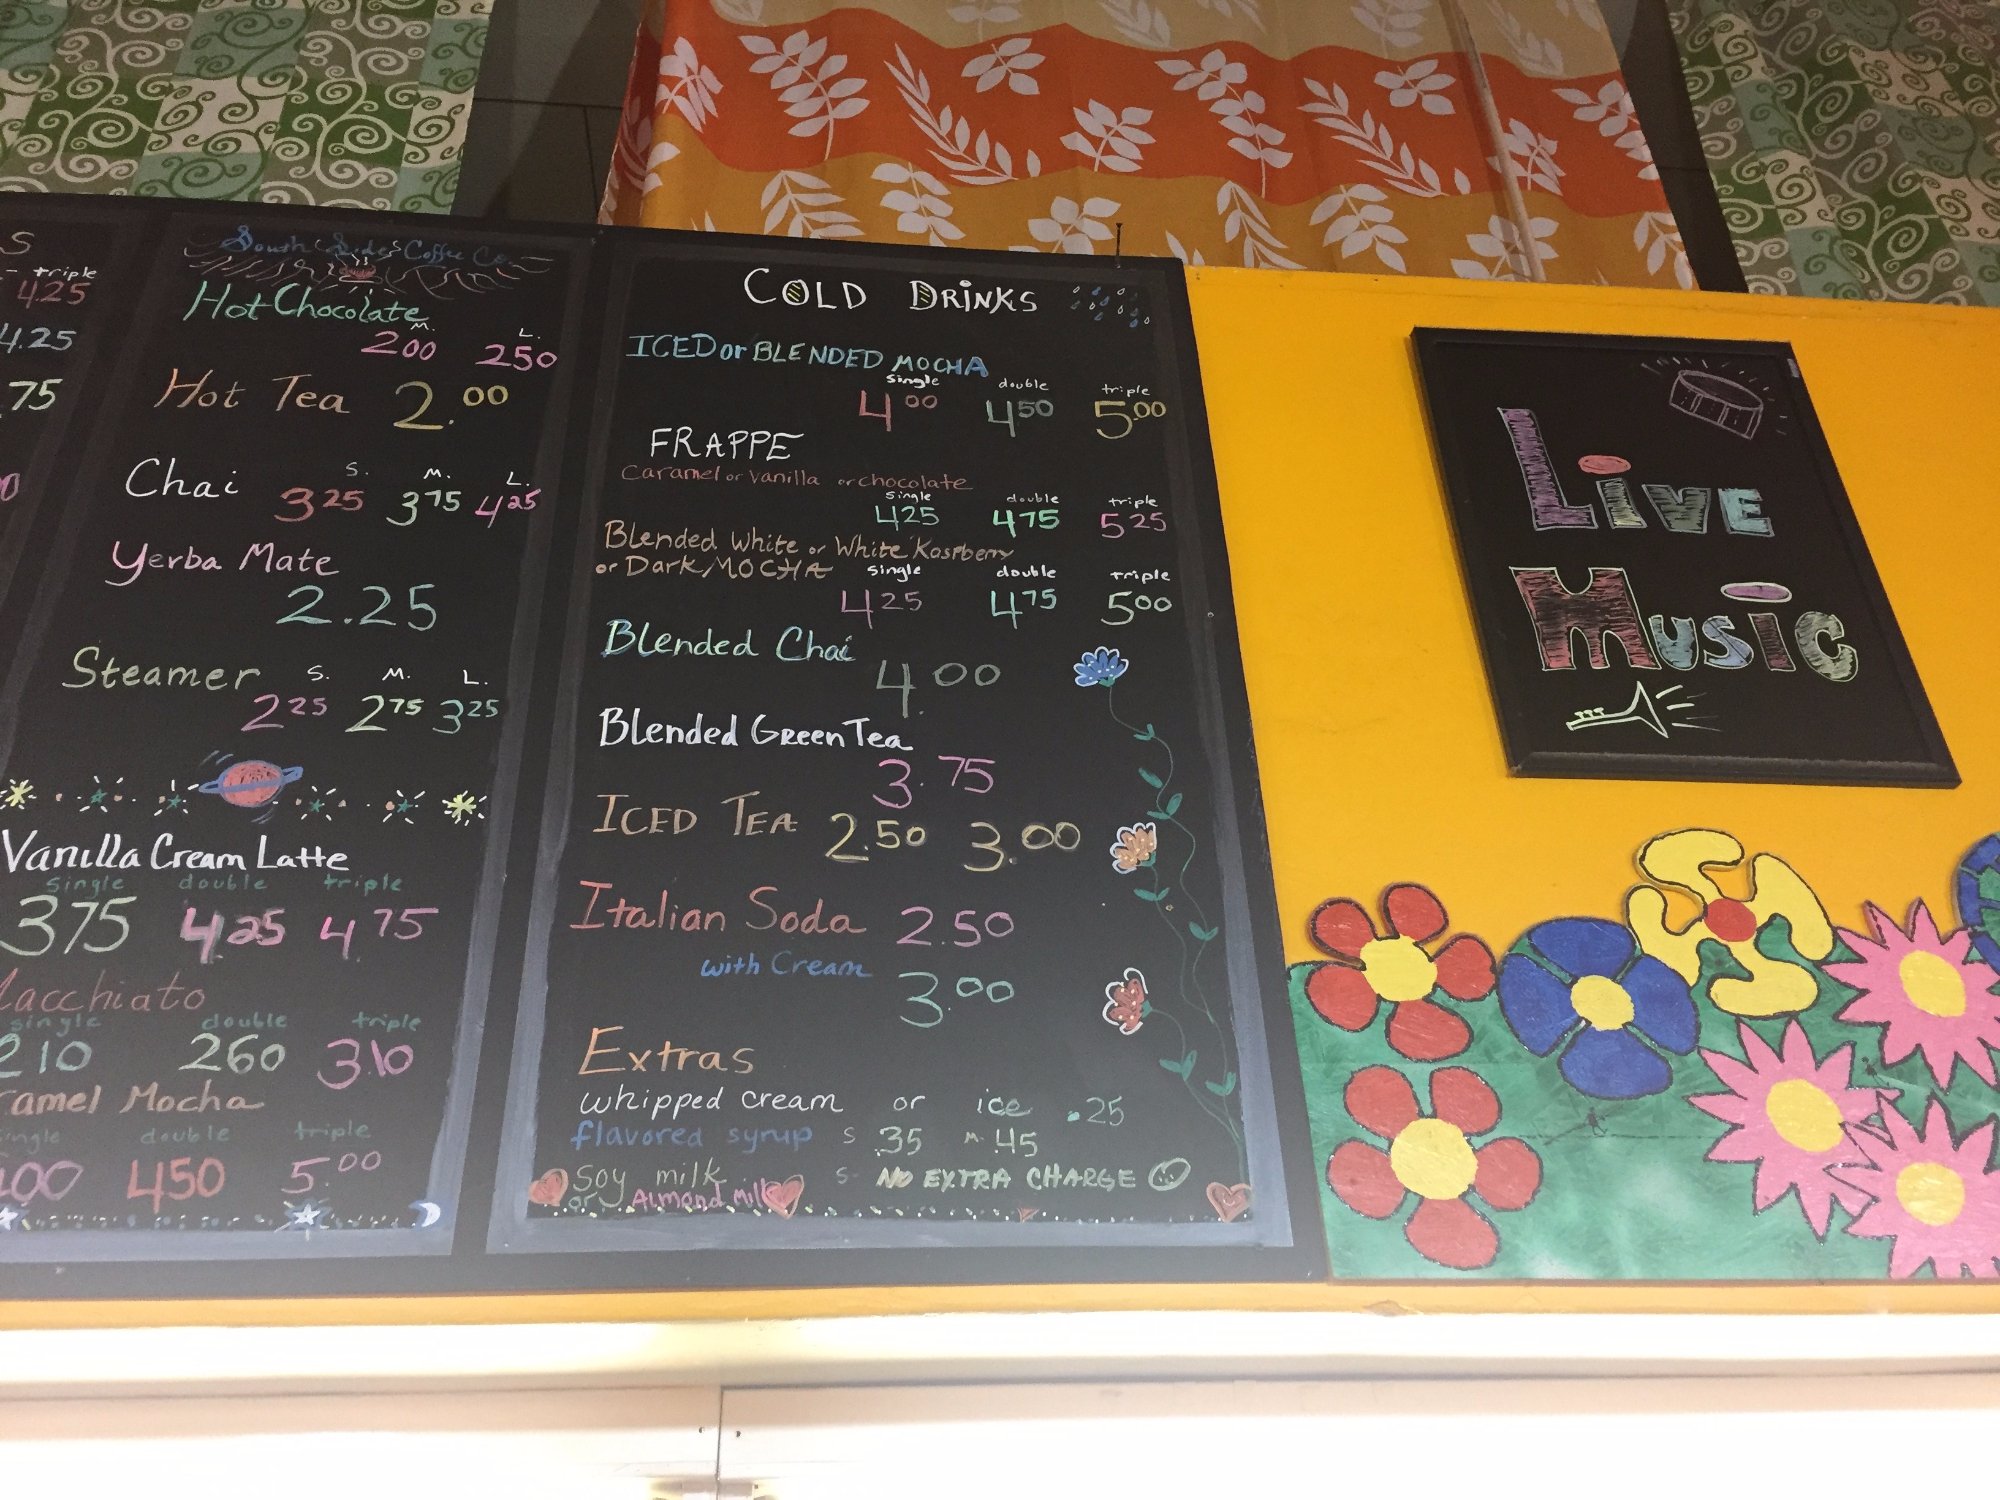 S
triple
4.25
4.25
.75
0
South Side Coffee Co.
Hot Chocolate
M. L.
200 250
Hot Tea 2.00
Chai S. M. L.
325 375 425
Yerba Mate
2.25
Steamer S. M. L.
225 275 325
Vanilla Cream Latte
single double triple
375 425 475
Macchiato
single double triple
210 260 310
ramel Mocha
ingle double triple
400 450 5.00
COLD DRINKS
ICED or BLENDED MOCHA
single double triple
400 450 5.00
FRAPPE
Caramel or Vanilla or chocolate
single double triple
425 475 525
Blended White or White Raspberry
or Dark MOCHA single double triple
425 475 500
Blended Chai
4.00
Blended Green Tea
3.75
ICED TEA 2.50 3.00
Italian Soda 2.50
with Cream 3.00
Extras
whipped cream or ice .25
flavored syrup S .35 M. .45
Soy milk S- NO EXTRA CHARGE
or Almond Milk
Live
Music